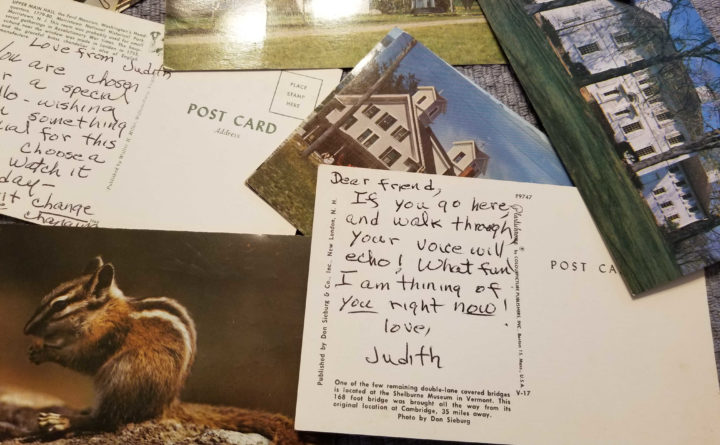 UPPER MAIN HALL, the Ford Mansion, Washington's Head
Love from Judith
You are chosen
r a special
llo - wishing
something
ial for this
choose a
watch it
day -
it change
POST CARD
Address
PLACE
STAMP
HERE
Dear friend,
If you go here
and walk through
your voice will
echo! What fun!
I am thining of
you right now!
love,
Judith
One of the few remaining double-lane covered bridges
is located at the Shelburne Museum in Vermont. This
168 foot bridge was brought all the way from its
original location at Cambridge, 35 miles away.
Photo by Don Sieburg
Published by Don Sieburg & Co., Inc., New London, N. H.
P9747
Plastichrome ® by COLOURPICTURE PUBLISHERS, INC. Boston 15, Mass., U.S.A.
V-17
POST CA